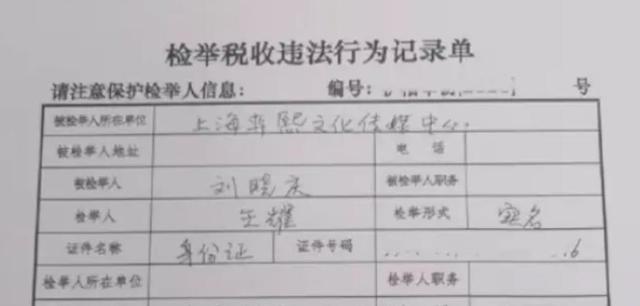 检举税收违法行为记录单
请注意保护检举人信息： 编号： 号
被检举人所在单位 上海華熙文化传媒中心
被检举人地址 电 话
被检举人 刘晓庆 被检举人职务
检举人 王耀 检举形式 实名
证件名称 身份证 证件号码 6
检举人所在单位 检举人职务